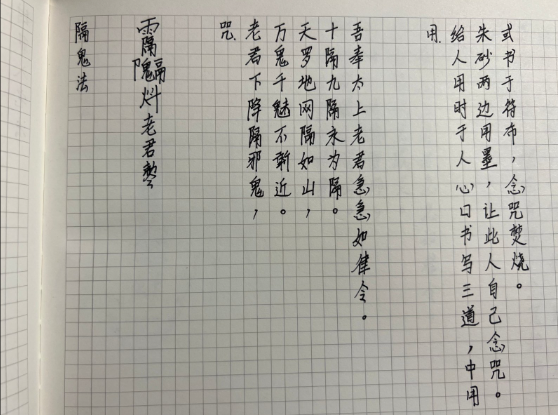 隔鬼法
老君
咒
老君下降隔邪鬼，
万鬼千魅不敢近。
天罗地网隔如山，
十隔九隔永为隔。
吾奉太上老君急急如律令。
用
给人用时于人心口书写三道，中用
朱砂两边用墨，让此人自己念咒。
或书于符布，念咒焚烧。